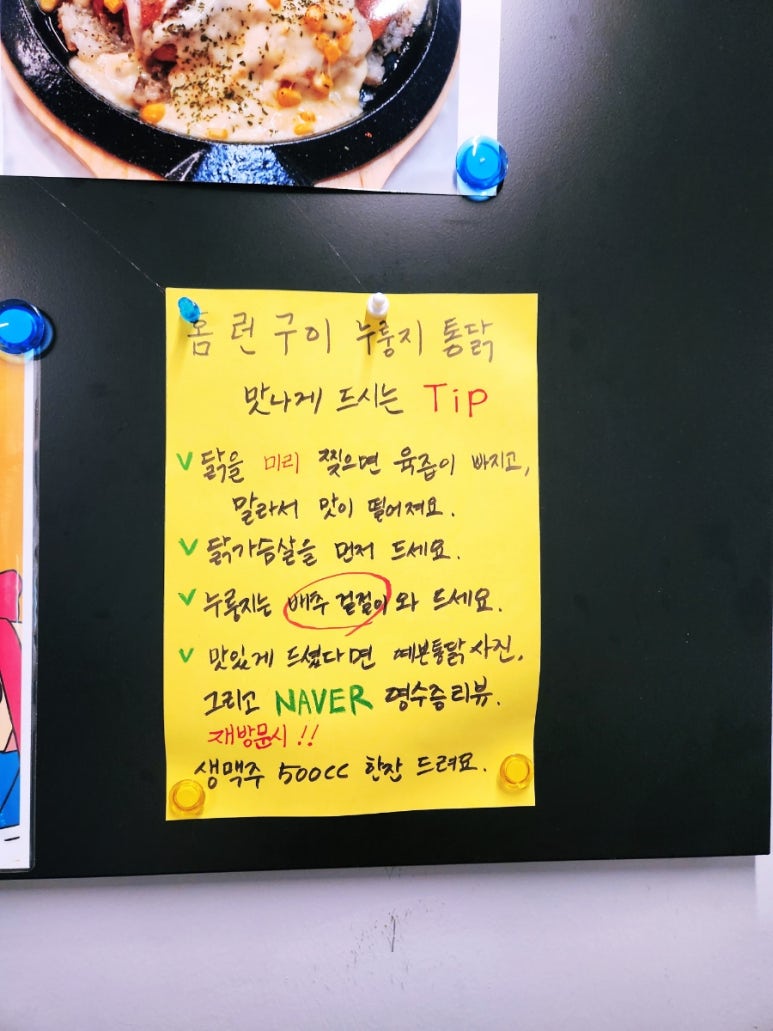 홈런구이 누룽지 통닭
맛나게 드시는 Tip
닭을 미리 찢으면 육즙이 빠지고,
말라서 맛이 떨어져요.
닭가슴살을 먼저 드세요.
누룽지는 배추 겉절이와 드세요.
맛있게 드셨다면 예쁜통닭사진,
그리고 NAVER 영수증리뷰.
재방문시!!
생맥주 500cc 한잔 드려요.